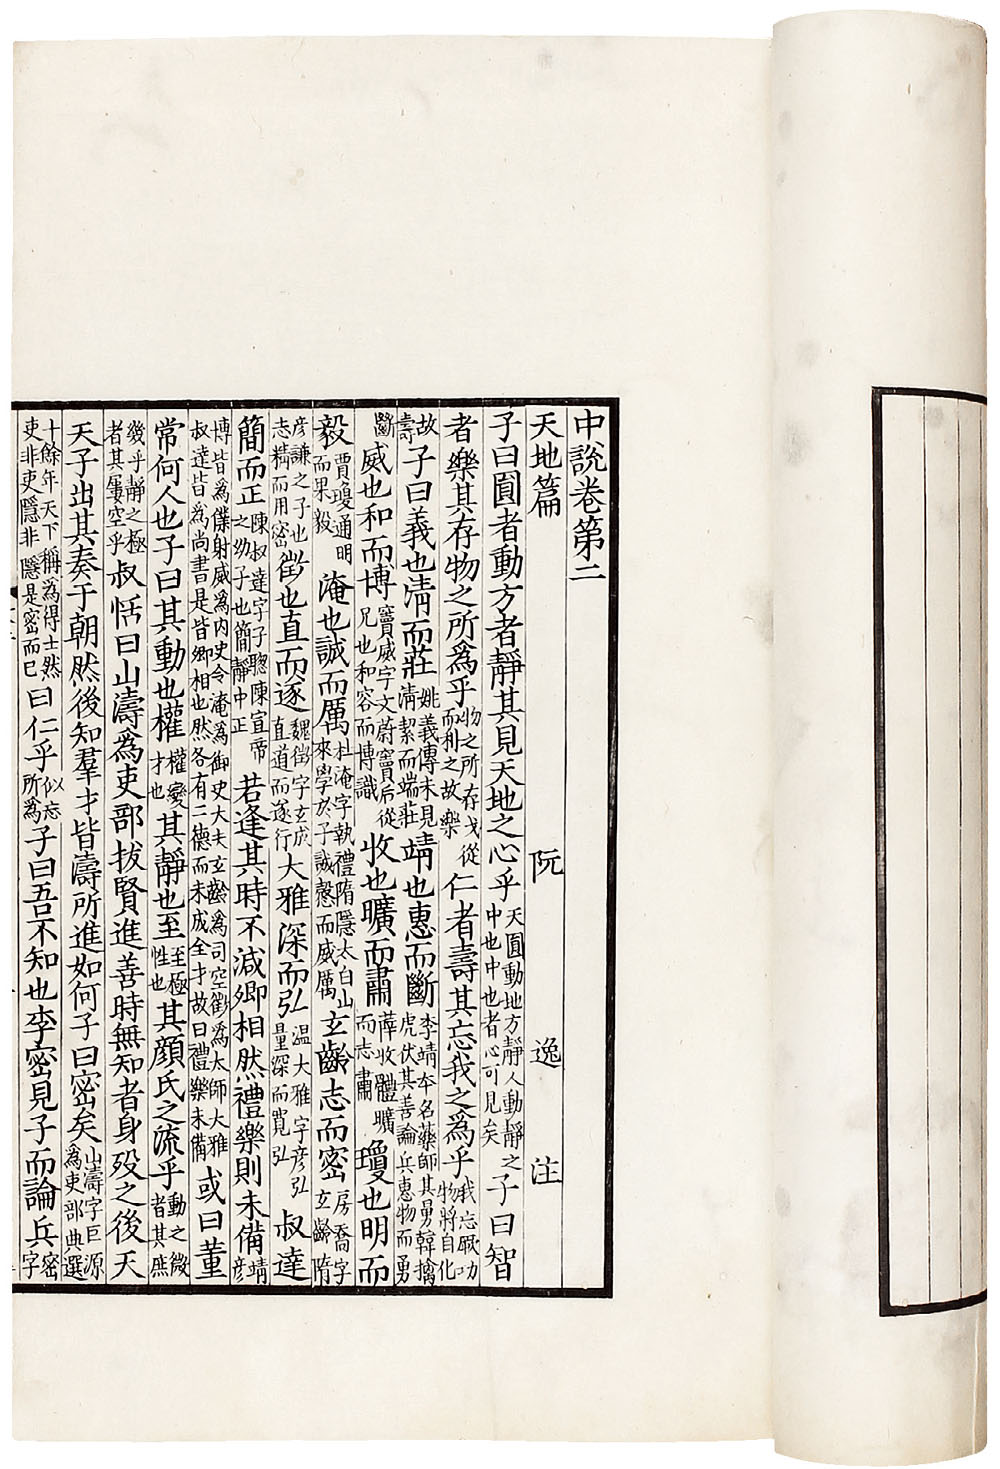 中說卷第二
天地篇 阮 逸 注
子曰圓者動方者靜其見天地之心乎天圓動地方靜人動靜之中也中也者心可見矣子曰智
者樂其存物之所爲乎物之所存我從而利之故樂仁者壽其忘我之爲乎我忘厥功物將自化
故壽子曰義也清而莊姚義傳未見清潔而端莊靖也惠而斷李靖本名藥師其舅韓擒虎伏其善論兵惠物而勇
斷威也和而博竇威字文蔚竇后從兄也和容而博識收也曠而肅薛收體曠而志肅瓊也明而
毅賈瓊通明而果毅淹也誠而厲杜淹字執禮隋隱太白山來學於子誠慤而威厲玄齡志而密房喬字玄齡隋
彦謙之子也志精而用密徵也直而遂魏徵字玄成直道而遂行大雅深而弘温大雅字彦弘量深而寬弘叔達
簡而正陳叔達字子聰陳宣帝之幼子也簡靜中正若逢其時不減卿相然禮樂則未備靖彦
博皆爲僕射威爲内史令淹爲御史大夫玄齡爲司空徵爲太師大雅叔達皆爲尚書是皆卿相也然各有二德而未成全才故曰禮樂未備或曰董
常何人也子曰其動也權權變才也其靜也至至極性也其顔氏之流乎動之微者其庶
幾乎靜之極者其屢空乎叔恬曰山濤爲吏部拔賢進善時無知者身殁之後天
天子出其奏于朝然後知羣才皆濤所進如何子曰密矣山濤字巨源爲吏部典選
十餘年天下稱爲得士然吏非吏隱非隱是密而已曰仁乎似忘所爲子曰吾不知也李密見子而論兵密字